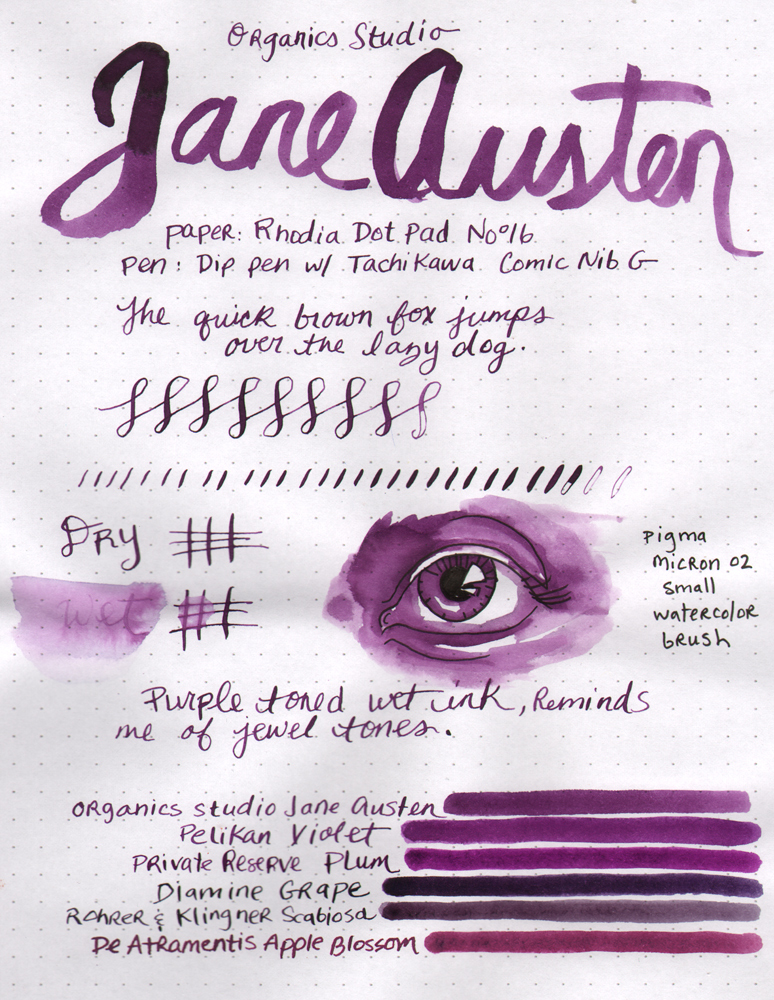 Organics Studio
Jane Austen
paper: Rhodia Dot Pad No°16
pen: Dip pen w/ Tachikawa Comic Nib G
The quick brown fox jumps
over the lazy dog.
Dry
wet
pigma
micron 02
small
watercolor
brush
Purple toned wet ink, Reminds
me of jewel tones.
Organics Studio Jane Austen
Pelikan Violet
Private Reserve Plum
Diamine Grape
Rohrer & Klingner Scabiosa
De Atramentis Apple Blossom